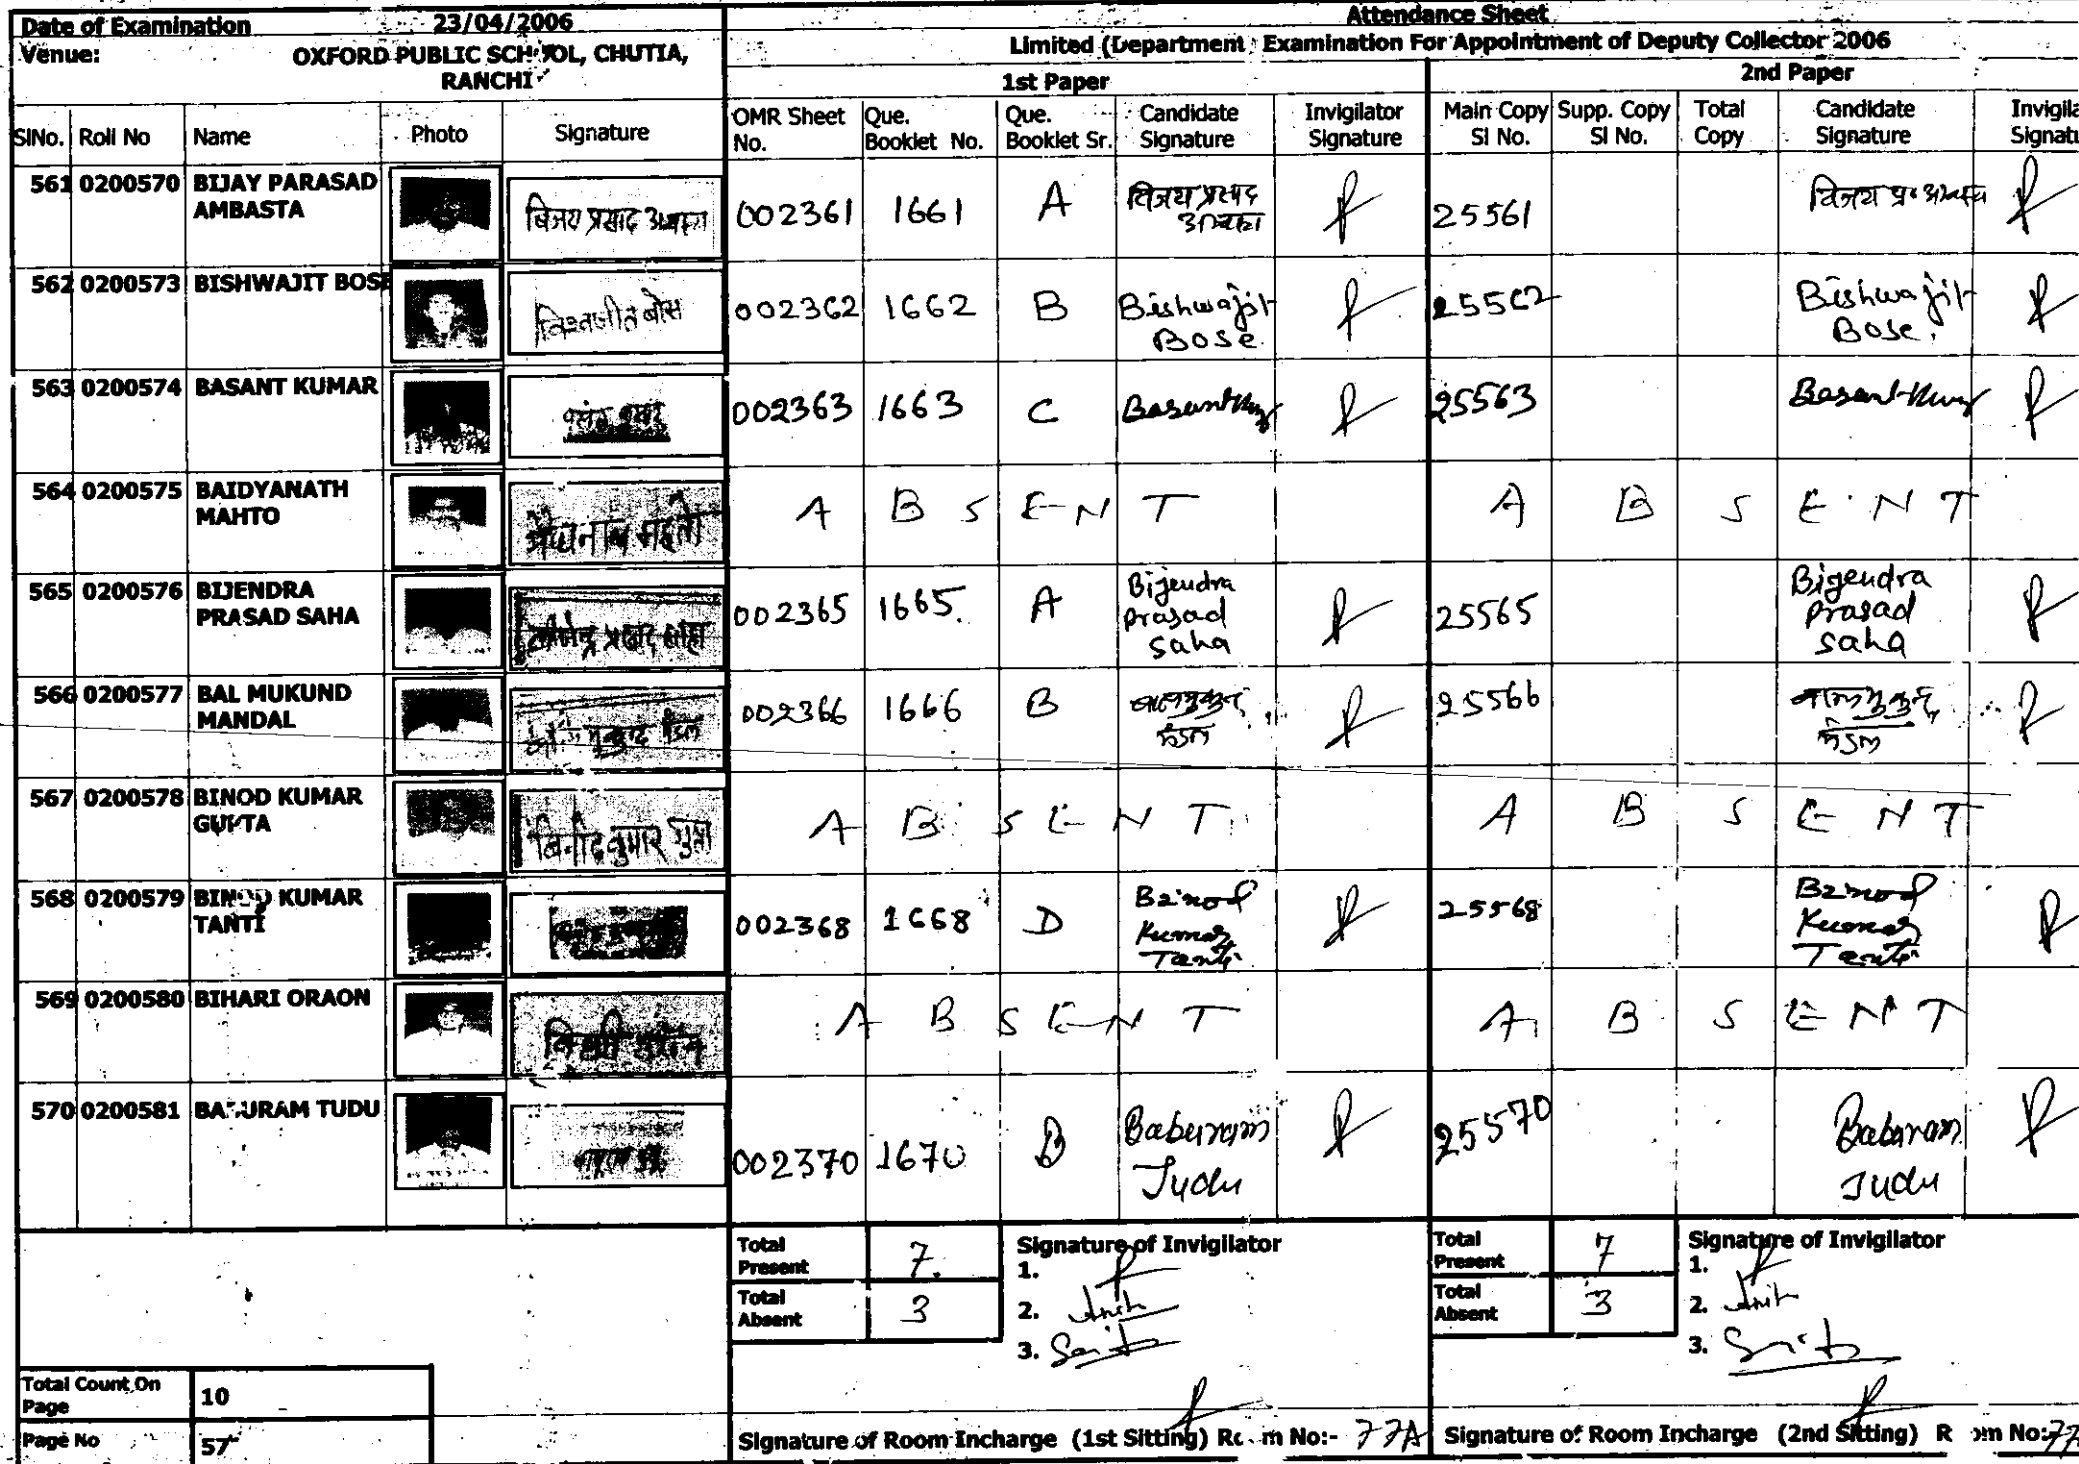 Date of Examination 23/04/2006
Attendance Sheet
Venue: OXFORD PUBLIC SCHOOL, CHUTIA,
RANCHI
Limited (Department Examination For Appointment of Deputy Collector 2006
1st Paper 2nd Paper
SlNo. Roll No Name Photo Signature OMR Sheet No. Que. Booklet No. Que. Booklet Sr. Candidate Signature Invigilator Signature Main Copy Sl No. Supp. Copy Sl No. Total Copy Candidate Signature
561 0200570 BIJAY PARASAD AMBASTA बिजय प्रसाद अम्बष्ठा 002361 1661 A विजय प्रसाद 25561 विजय प्र०
562 0200573 BISHWAJIT BOSE विश्वजीत बोस 002362 1662 B Bishwajit Bose. 25562 Bishwajit Bose.
563 0200574 BASANT KUMAR 002363 1663 C Basant 25563 Basant
564 0200575 BAIDYANATH MAHTO महतो A B S E N T A B S E N T
565 0200576 BIJENDRA PRASAD SAHA प्रसाद साहा 002365 1665. A Bijendra Prasad Saha 25565 Bijendra Prasad Saha
566 0200577 BAL MUKUND MANDAL मुकुन्द मंडल 002366 1666 B बालमुकुन्द मंडल 25566 बालमुकुन्द मंडल
567 0200578 BINOD KUMAR GUPTA बिनोद कुमार गुप्ता A B S E N T A B S E N T
568 0200579 BINOD KUMAR TANTI 002368 1668 D Binod Kumar Tanti 25568 Binod Kumar Tanti
569 0200580 BIHARI ORAON A B S E N T A B S E N T
570 0200581 BABURAM TUDU 002370 1670 B Baburam Tudu 25570 Baburam Tudu
Total Present 7. Signature of Invigilator Total Present 7 Signature of Invigilator
1. 1.
Total Absent 3 2. Total Absent 3 2.
3. 3.
Total Count On Page 10
Page No 57
Signature of Room Incharge (1st Sitting) Room No:- 77A Signature of Room Incharge (2nd Sitting) Room No:-